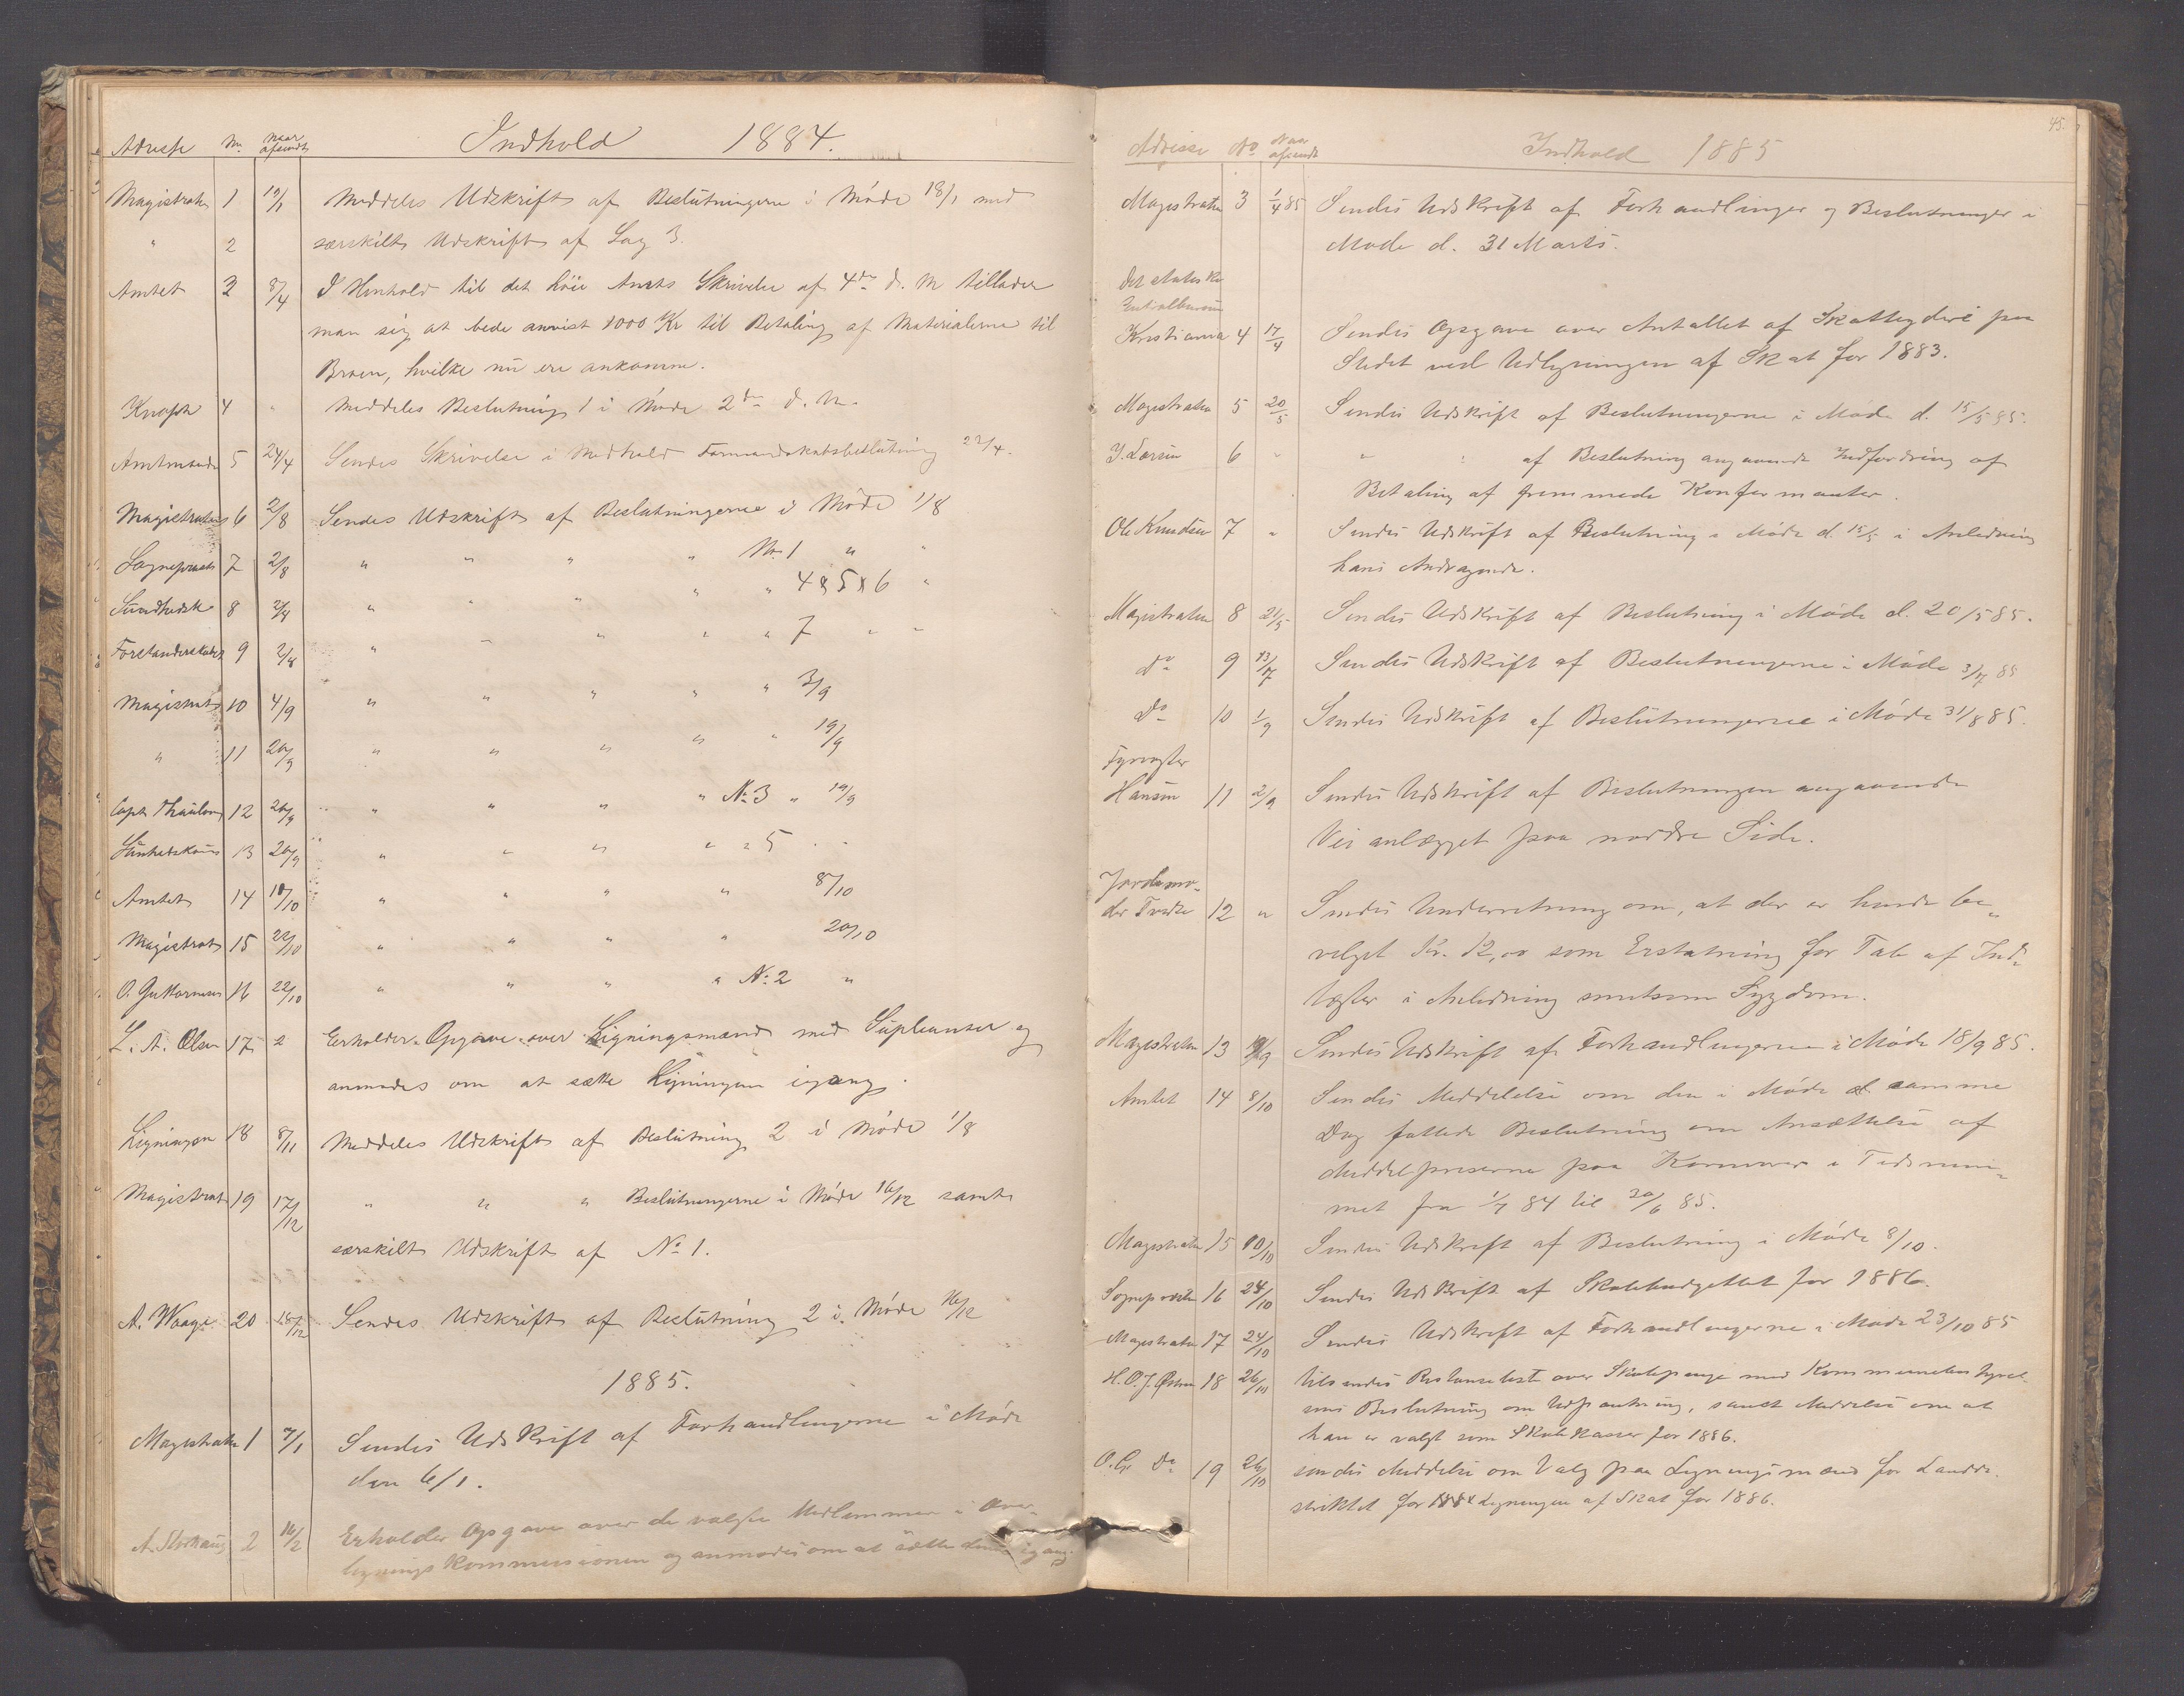 Adresse No. naar afsendt Indhold 1884.
Magistraten 1 19/1 Meddeles Udskrift af Beslutningerne i Møde 18/1 med
" 2 særskilt Udskrift af Sag 3.
Amtet 3 8/4 I Henhold til det høie Amts Skrivelse af 4de d. M tillader
man sig at bede anvist 1000 Kr til Betaling af Materialerne til
Broen, hvilke nu ere ankomne.
Knoph 4 " Meddeles Beslutning 1 i Møde 2den d. M.
Amtmand 5 24/4 Sendes Skrivelse i Medhold Formandskabsbeslutning 22/4.
Magistraten 6 2/8 Sendes Udskrift af Beslutningerne i Møde 1/8
Sognepræst 7 2/8 " " " " No. 1 " "
Sundhedsk 8 2/8 " " " " " 4 & 5 & 6 "
Forstanderskabet 9 2/8 " " " " " 7 " "
Magistrat 10 4/9 " " " " " 3/9
" 11 20/9 " " " " " 19/9
Capt. Thaulow 12 20/9 " " " " No 3 " 19/9
Sunhetskom 13 20/9 " " " " " 5 " "
Amtet 14 10/10 " " " " 8/10
Magistrat 15 22/10 " " " " 20/10
O. Guttormsen 16 22/10 " " " " No 2 "
L. A. Olsen 17 " Erholder Opgave over Ligningsmænd med Supleanter og
anmodes om at sætte Ligningen igang.
Ligningen 18 8/11 Meddeles Udskrift af Beslutning 2 i Møde 1/8
Magistrat 19 17/12 " " " Beslutningerne i Møde 16/12 samt
særskilt Udskrift af No 1.
A. Waage 20 18/12 Sendes Udskrift af Beslutning 2 i Møde 16/12
1885.
Magistraten 1 7/1 Sendes Udskrift af Forhandlingerne i Møde
den 6/1.
A. Storhaug 2 16/2 Erholder Opgave over de valgte Medlemmer i Over-
ligningskommissionen og anmodes om at sætte denne igang.
45.
Adresse No Naar afsendt Indhold 1885
Magistraten 3 1/4 85 Sendes Udskrift af Forhandlinger og Beslutninger i
Møde d. 31 Marts.
Det statistiske
Centralbureau
Kristiania 4 17/4 Sendes Opgave over Antallet af Skatteydere paa
Stedet ved Udligningen af Skat for 1883.
Magistraten 5 20/5 Sendes Udskrift af Beslutningerne i Møde d. 15/5 85.
Y. Larsen 6 " " " af Beslutning angaaende Indfordring af
Betaling af fremmede Konfermanter.
Ole Knudsen 7 " Sendes Udskrift af Beslutning i Møde d. 15/5 i Anledning
hans Andragende.
Magistraten 8 21/5 Sendes Udskrift af Beslutning i Møde d. 20/5 85.
Do 9 13/7 Sendes Udskrift af Beslutningerne i Møde 3/7 85
Do 10 1/9 Sendes Udskrift af Beslutningerne i Møde 31/8 85.
Fyrvogter
Hansen 11 2/9 Sendes Udskrift af Beslutningen angaaende
Vei anlægget paa nordre Side.
Jordemo-
der Tveite 12 " Sendes Underretning om, at der er hende be-
vilget Kr. 12,00 som Erstatning for Tab af Ind-
tægter i Anledning smitsom Sygdom.
Magistraten 13 19/9 Sendes Udskrift af Forhandlingerne i Møde 18/9 85.
Amtet 14 8/10 Sendes Meddelelse om den i Møde d. samme
Dag fattede Beslutning om Ansættelse af
Middelpriserne paa Kornvarer i Tidsrum-
met fra 1/7 84 til 30/6 85.
Magistraten 15 10/10 Sendes Udskrift af Beslutning i Møde 8/10.
Sognepræsten 16 24/10 Sendes Udskrift af Skolebudgettet for 1886.
Magistraten 17 24/10 Sendes Udskrift af Forhandlingerne i Møde 23/10 85
H. O. J. Østen 18 26/10 tilsendes Restanseliste over Skolepenge med Kommunebestyrel-
sens Beslutning om Udpantning, samt Meddelelse om at
han er valgt som Skolekasser for 1886.
O. G. Do 19 26/10 sendes Meddelelse om Valg paa Ligningsmænd for Landdi-
striktet for Ligningen af Skat for 1886.